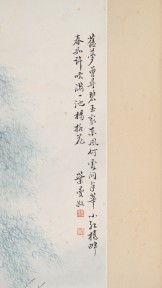 舊夢曾尋碧玉家東風何處問年華小紅橋畔
春如許吹滿一池楊柳花
葉曼叔